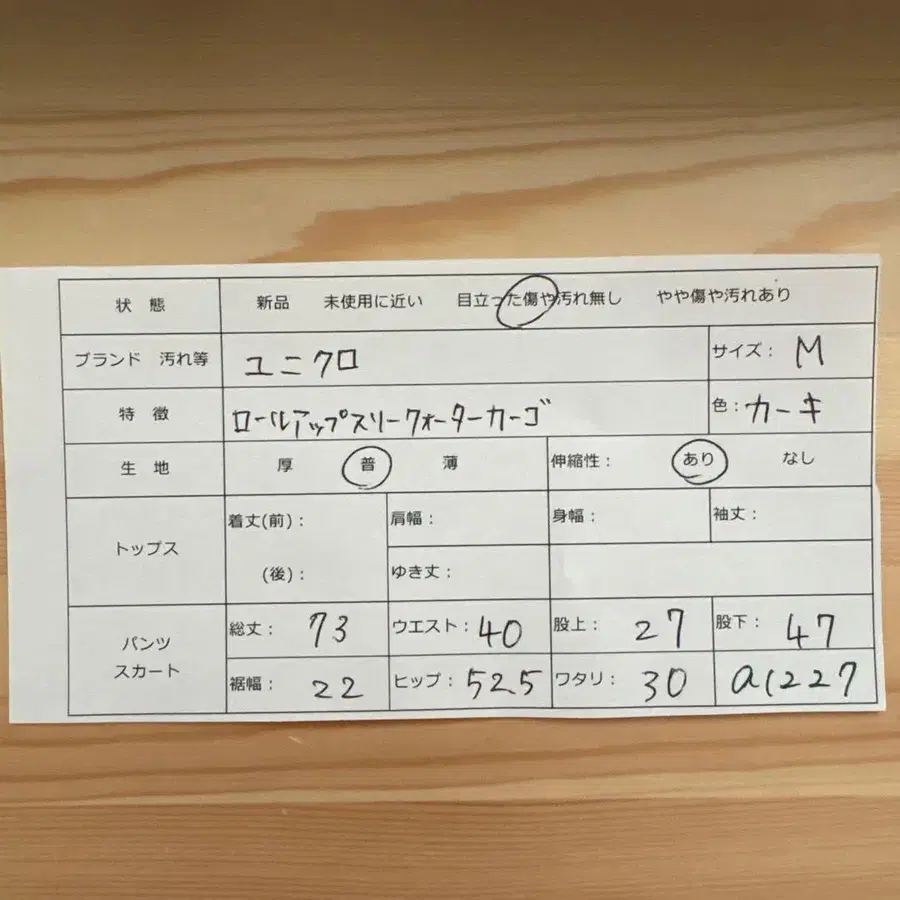 状 態 新品 未使用に近い 目立った傷や汚れ無し やや傷や汚れあり
ブランド 汚れ等 ユニクロ サイズ: M
特 徴 ロールアップスリークォーターカーゴ 色: カーキ
生 地 厚 普 薄 伸縮性: あり なし
トップス 着丈(前): 肩幅: 身幅: 袖丈:
(後): ゆき丈:
パンツ スカート 総丈: 73 ウエスト: 40 股上: 27 股下: 47
裾幅: 22 ヒップ: 52.5 ワタリ: 30 a1227